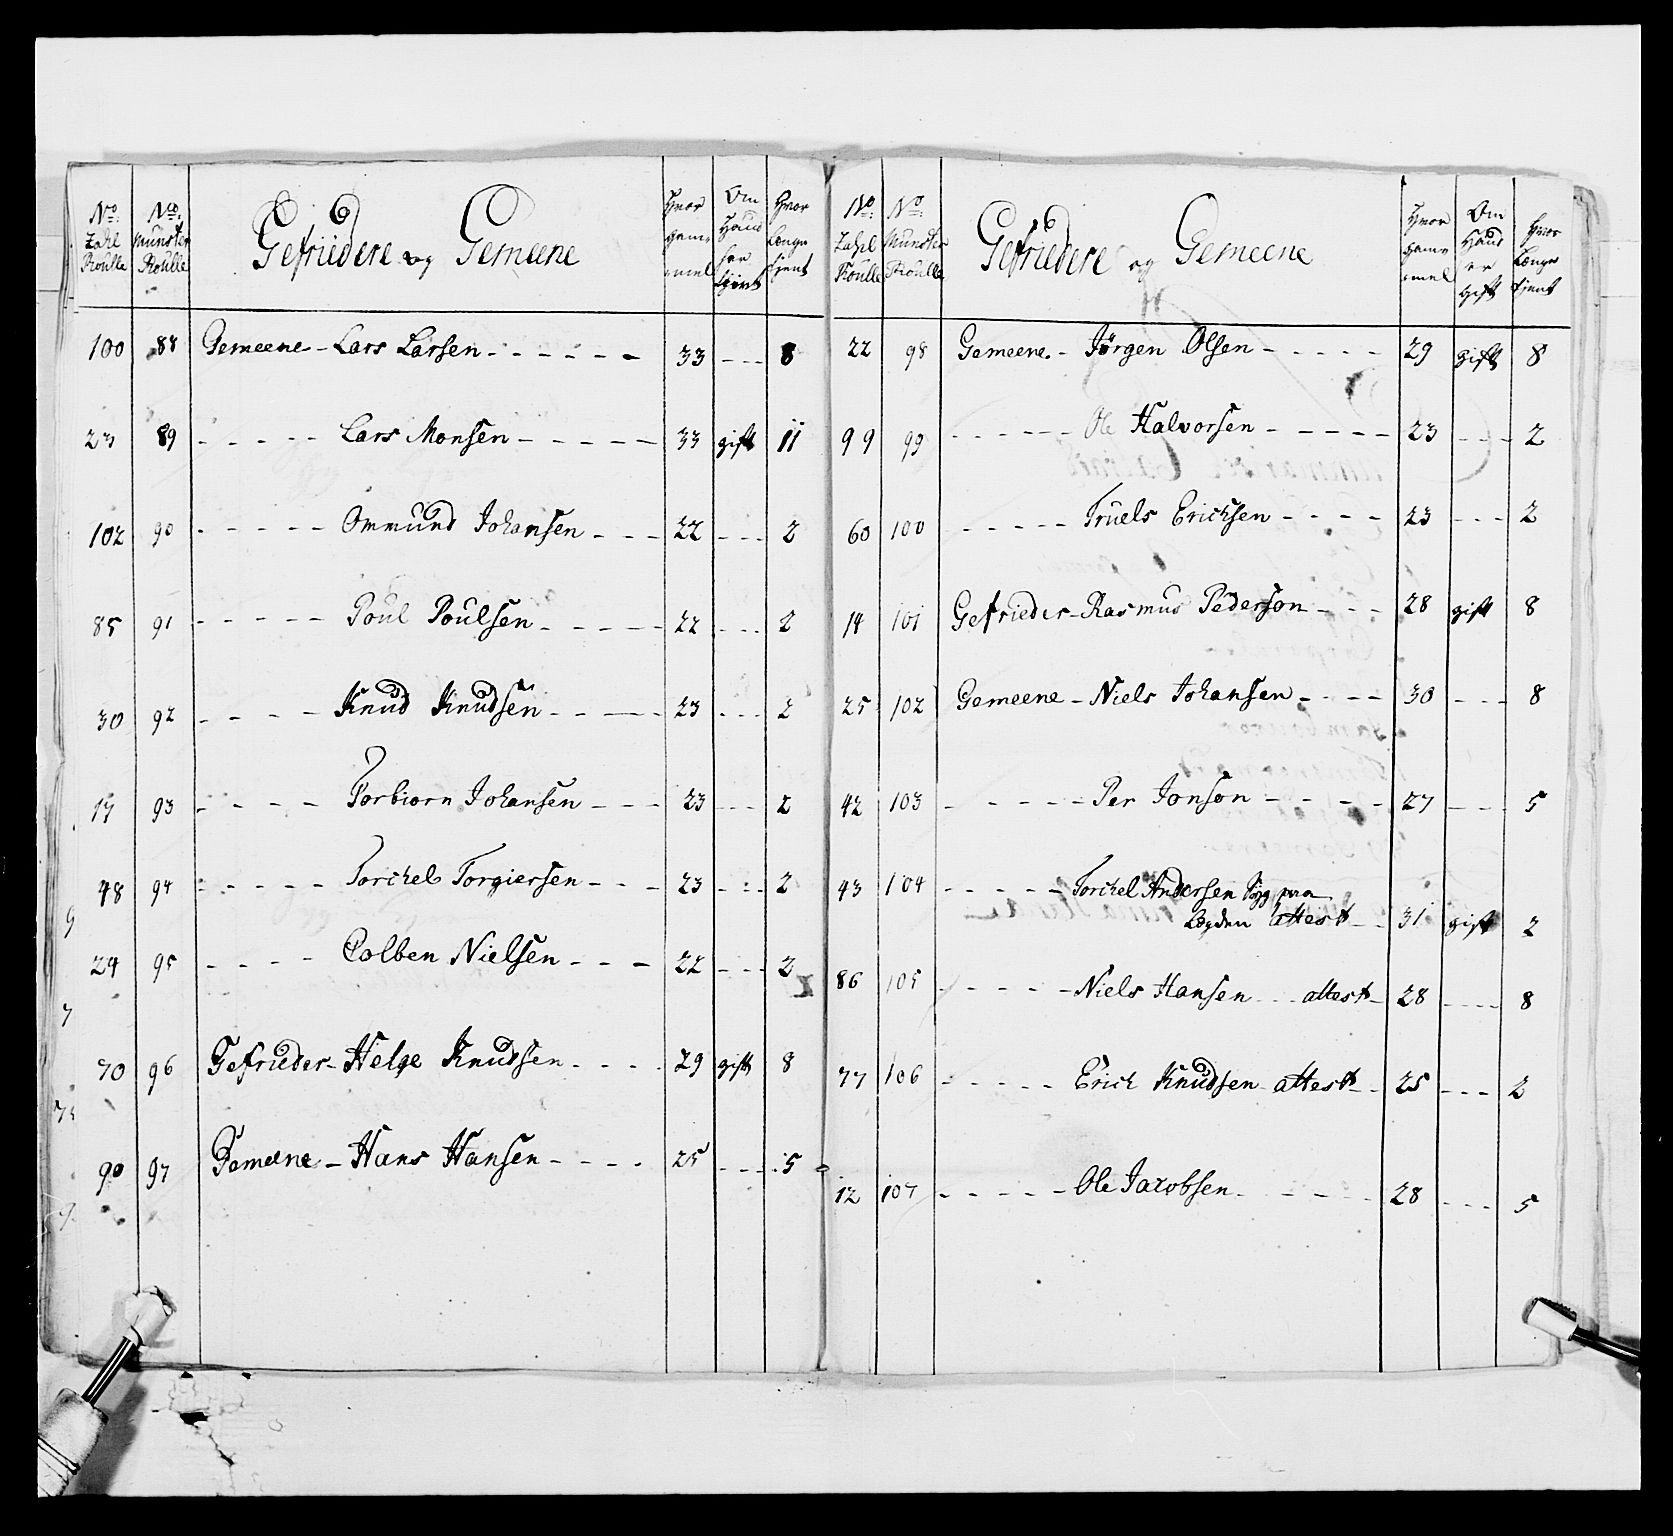 No: Zahl Roulle | No: Münster Roulle | Gefriedere og Gemeene | Hvor gammel | Om Haud | Hvor Længe tjent
100 88 Gemeene - Lars Larsen - - - - - - 33 - - - 8
23 89 - - - - - Lars Monsen - - - - - 33 gift 11
102 90 - - - - - Ommund Johansen - - - 22 - - - 2
85 91 - - - - - Poul Poulsen - - - - - 22 - - - 2
30 92 - - - - Knud Knudsen - - - - 23 - - - 2
17 93 - - - - Torbiorn Johansen - - - 23 - - - 2
48 94 - - - - - Torchel Torgiersen - - - 23 - - - 2
24 95 - - - - Colben Nielsen - - - 22 - - - 2
70 96 Gefrieder - Helge Knudsen - - - - 29 gift 8
90 97 Gemeene - Hans Hansen - - - - 25 - - - 5
No: Zahl Roulle | No: Münster Roulle | Gefriedere og Gemeene | Hvor gammel | Om Haud er gift | Hvor Længe tjent
22 98 Gemeene - Jörgen Olsen - - - - - 29 gift 8
99 99 - - - - - - Ole Halvorsen - - - - - 23 - - - 2
60 100 - - - - - Truels Erichsen - - - - 23 - - - 2
14 101 Gefrieder - Rasmus Pederson - - - 28 gift 8
25 102 Gemeene - Niels Johansen - - - - 30 - - - 8
42 103 - - - - - Per Jonson - - - - - 27 - - - 5
43 104 - - - - - Torchel Andersen
Lægden attest - - 31 gift 2
86 105 - - - - - Niels Hansen - - attest - 28 - - - - 8
77 106 - - - - - Erich Knudsen - attest - - 25 - - - 2
12 107 - - - - - Ole Jacobsen - - - - - 28 - - - 5